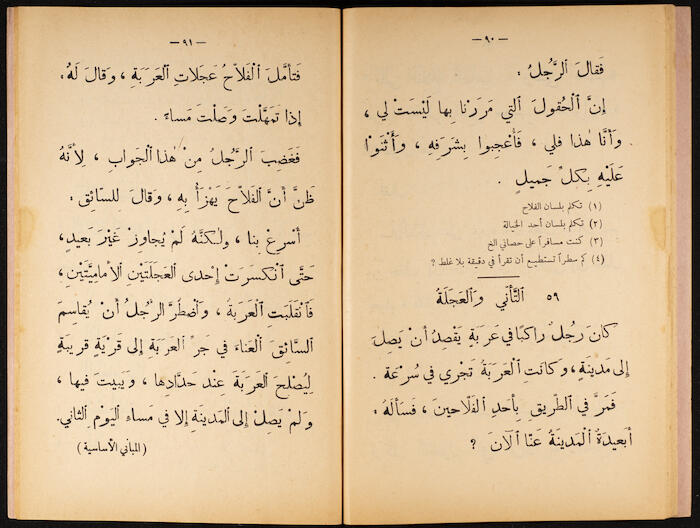 — ٩٠ —
فَقالَ ٱلرَّجُلُ :
إِنَّ ٱلْحُقولَ ٱلتي مَرَرْنا بِها لَيْسَتْ لي ،
وَأَنا هٰذا فلي ، فَأُعْجِبوا بِشَرَفِهِ ، وَأَثْنَوْا
عَلَيْهِ بِكلِّ جَميلٍ .
(١) تكلم بلسان الفلاح
(٢) تكلم بلسان أحد الخيالة
(٣) كنت مسافراً على حصاني الخ
(٤) كم سطراً تستطيع أن تقرأ في دقيقة بلا غلط ؟
٥٩ التَّأَنّي وَالعَجَلَةُ
كانَ رَجُلٌ راكبًا في عَرَبةٍ يَقْصِدُ أَنْ يَصِلَ
إِلى مَدينةٍ ، وَكانَتِ ٱلْعَرَبَةُ تَجْري في سُرْعَة .
فَمَرَّ في الطَّريقِ بِأَحَدِ الفَلّاحينَ ، فَسَأَلَهُ :
أَبَعيدَةٌ ٱلمَدينَةُ عَنّا ٱلآنَ ؟
— ٩١ —
فَتَأَمَّلَ ٱلْفَلاّحُ عَجَلاتِ ٱلعَرَبَةِ ، وَقالَ لَهُ :
إِذا تَمَهَّلْتَ وَصَلْتَ مَساءً .
فَغَضِبَ الرَّجُلُ مِنْ هٰذا ٱلْجَوابِ ، لِأَنَّهُ
ظَنَّ أَنَّ ٱلفَلاّحَ يَهْزَأُ بِهِ ، وَقالَ لِلسّائِقِ :
أَسْرِعْ بِنا ، وَلٰكنَّهُ لَمْ يُجاوِزْ غَيْرَ بَعيدٍ ،
حَتّى ٱنْكَسَرَتْ إِحْدى ٱلعَجَلَتَيْنِ ٱلأَمامِيَّتَيْنِ ،
فَٱنْقَلَبَتِ ٱلْعَرَبَةُ ، وَٱضْطُرَّ الرَّجُلُ أَنْ يُقاسِمَ
السّائقَ ٱلعَناءَ في جَرِّ ٱلعَرَبةِ إِلى قَرْيَةٍ قَريبَةٍ
لِيُصْلِحَ ٱلعَرَبَةَ عِندَ حدّادِها ، وَيَبيتَ فيها ،
وَلَمْ يَصِلْ إِلى ٱلمَدينَةِ إِلا في مَساءِ ٱليَوْمِ ٱلثاني.
(المباني الأساسية)